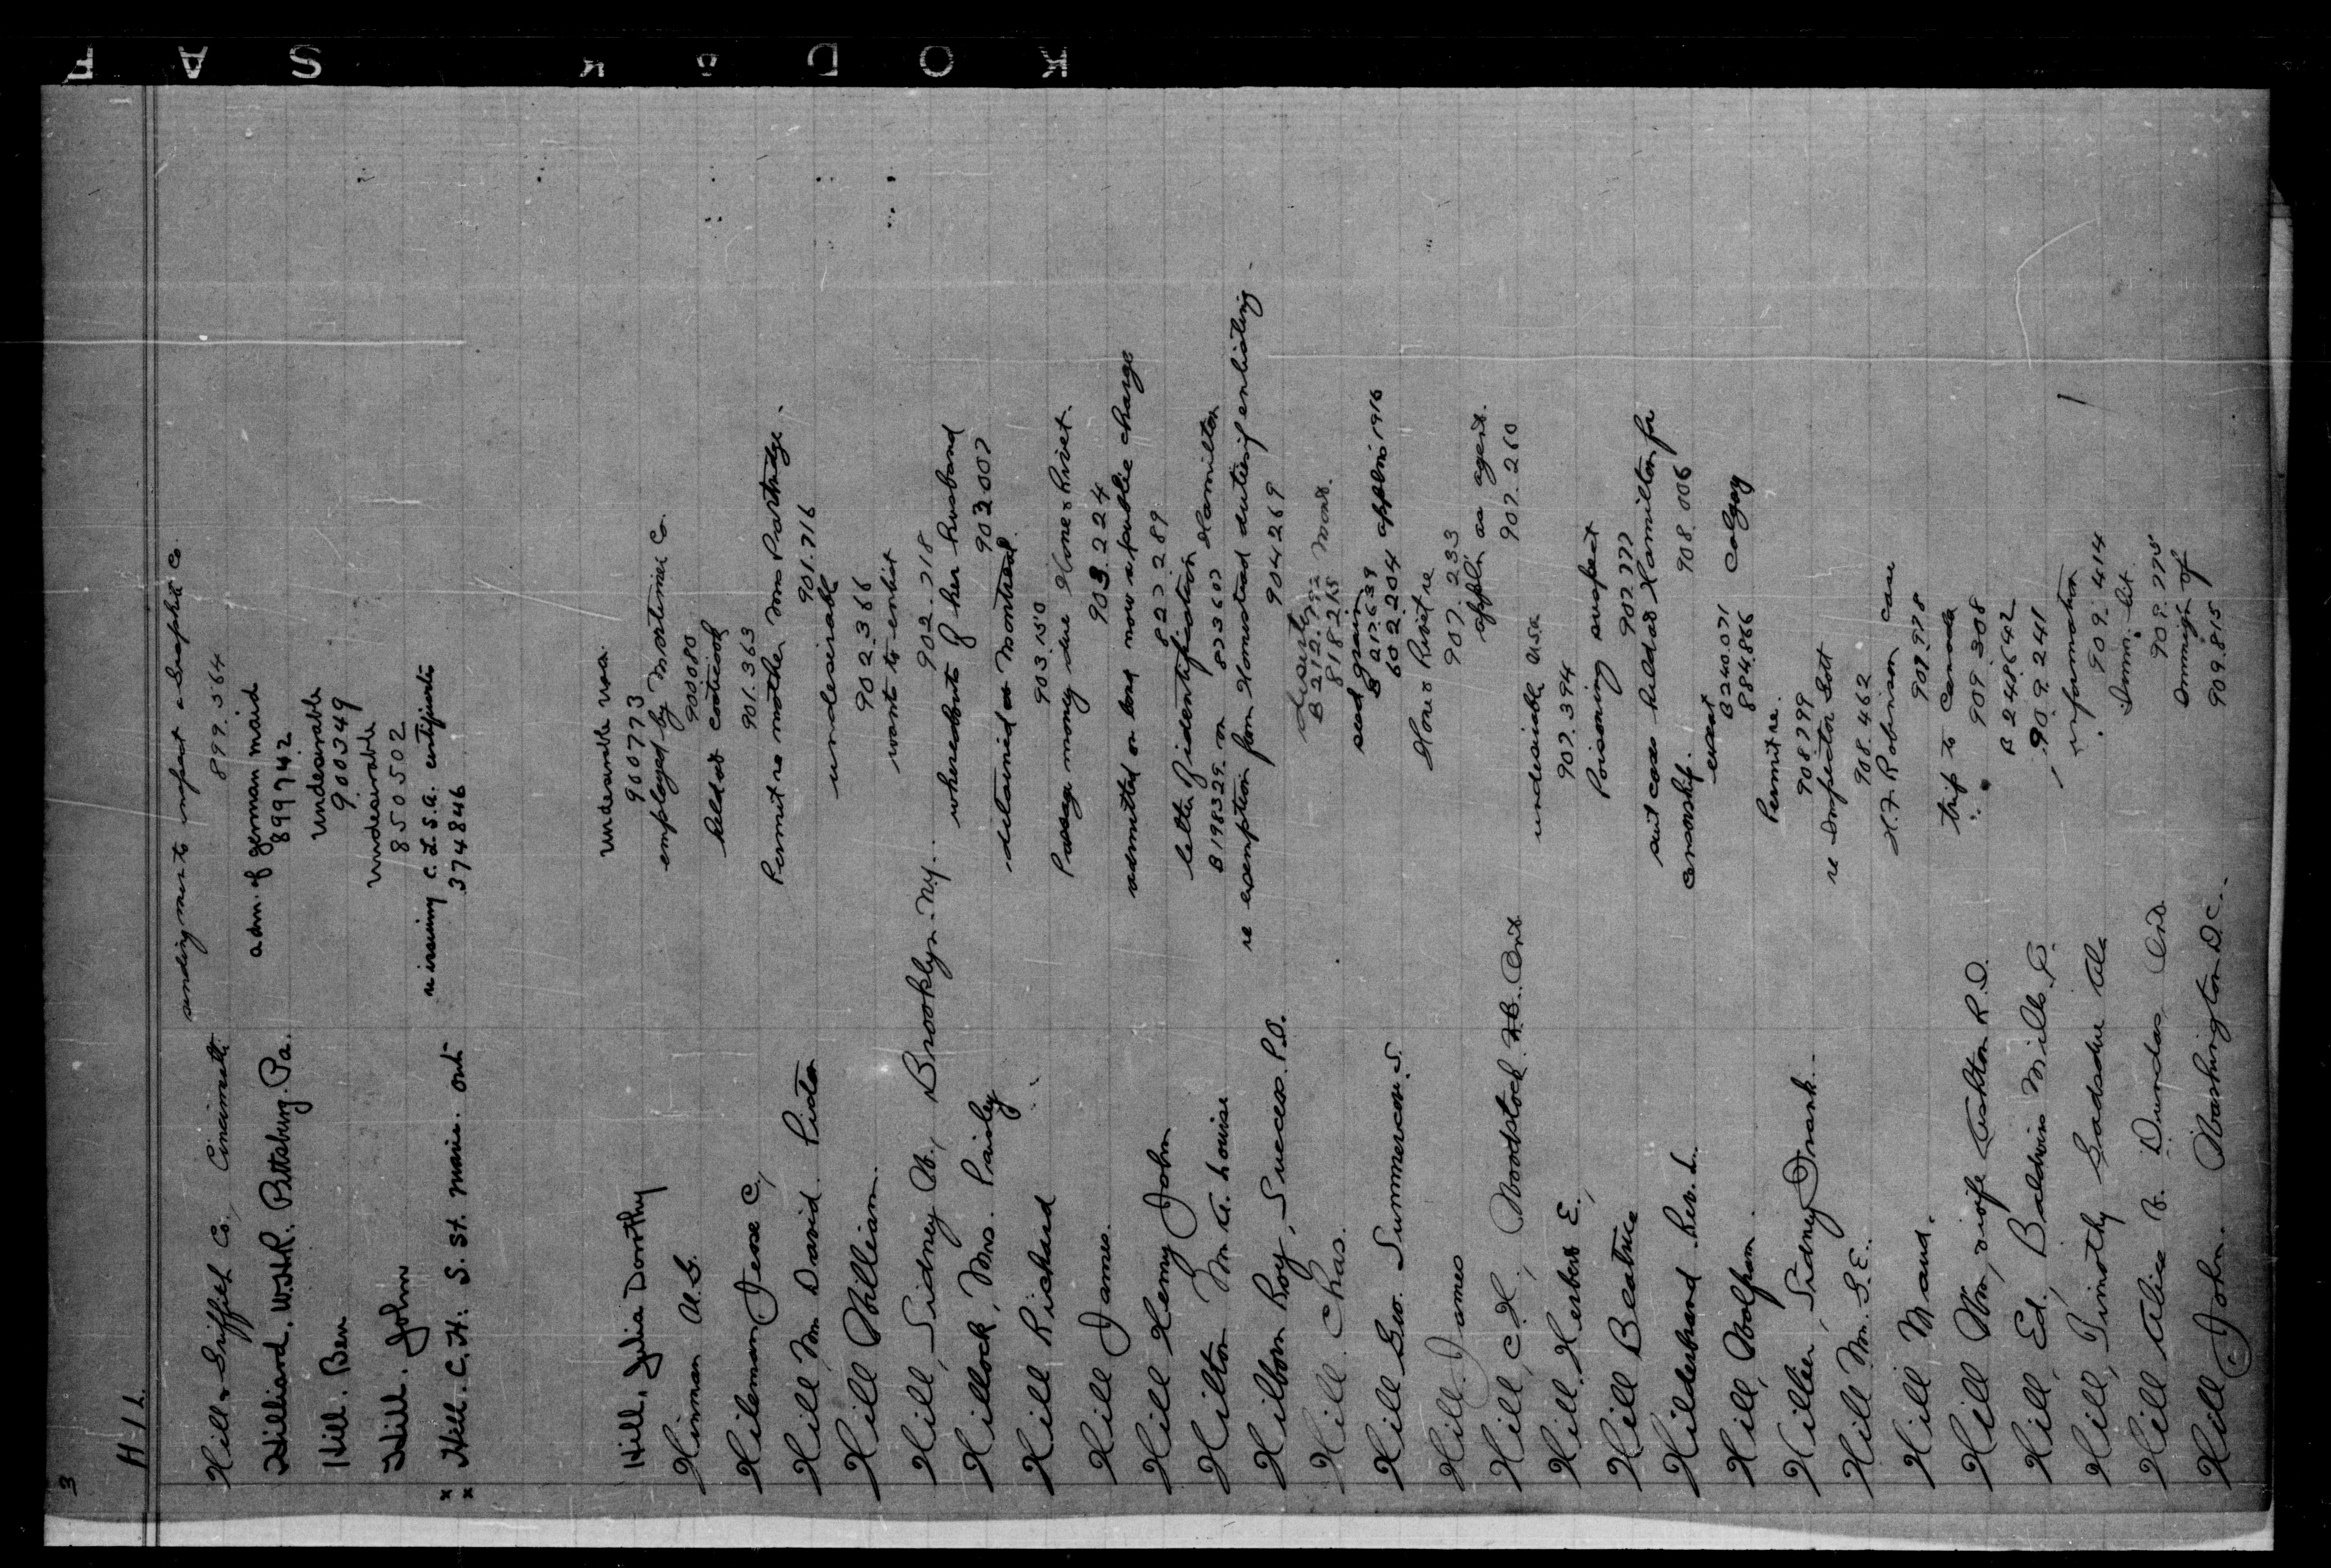 KODAK SAF
3
H-I L.
Hill & Griffith Co., Cincinnatti
sending man to inspect a Graphite Co.
899.564
Hilliard. W.H.R. Pittsburg. Pa.
adm. of german maid
899742
Hill. Ben
Undesirable
900349
Hill. John
undesirable
850502
x x Hill. C. H. S. St. Marie. Ont
re issuing C.L.S.A. certificate
374846
Hill. Julia Dorothy
Undesirable
900773
Hinman A.G.
employed by Mortimer Co.
900080
Hileman Jesse C.,
held at Coaticook
901.363
Hill, Mr David
Permit re mother Mrs Partridge.
901.716
Hill William.
undesirable
902.366
Hill, Sidney W., Brooklyn. N.Y.
want to enlist
902.718
Hillock, Mrs. Paisley
whereabouts of her husband
903007
Hill Richard
detained at Montreal
903.150
Hill James.
Passage money due Hone & Rivet.
903.224
Hill Henry John
admitted on bond now a public charge
827289
Hilton Mr A. Louise
letter of identification
B198329 on 873607 Hamilton
Hilborn Roy, Success. P.O.
re exemption from Homestead duties if enlisting
904269
Hill Chas.
B 212.792 Mont.
818215
Hill Geo. Summercove. S.
seed grain
B 217.639
602.204 appln 1916
Hill James
Hone & Rivet re
907.233
Hill, C.H., Woodstock N.B. Ont
appl'n as agent.
907.260
Hill. Herbert E.,
undesirable USA
907.394
Hill Beatrice
Poisoning suspect
907.777
Hilderbrand Rev. L.
suit case held at Hamilton for
censorship. 908.006
Hill, Wolfson.
B240.071 Calgary
884.866
Hillier, Sidney Frank.
Permit re.
908799
Hill Mr. G.E.
re Inspector Scott
908.462
Hill Maud.
H.F. Robinson case
907.978
Hill Wm, wife Ashton R.D.
trip to Canada
909.308
Hill, Ed., Baldwins Mills P.
B 248642
909.241
Hill, Timothy Gadsden Ala
information
909.414
Hill Alice B. Dundas Ont
Imm. lit
909.775
Hill John. Washington D.C.
Immig'n of
909.815